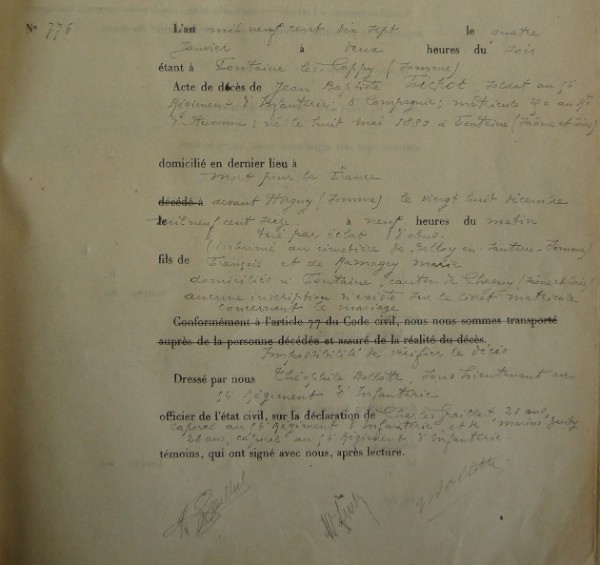 N° 776
L'an mil neuf cent dix sept le quatre
Janvier à deux heures du soir
étant à Fontaine les Cappy (Somme)
Acte de décès de Jean Baptiste soldat au
Régiment d'Infanterie; Compagnie; matricule au
d'Auxonne; né le huit mai à Fontaine (Saône et Loire)
domicilié en dernier lieu à
mort pour la France
décédé à devant Horgny (Somme) le vingt huit décembre
mil neuf cent seize à neuf heures du matin
tué par éclat d'obus.
(inhumé au cimetière de Belloy en Santerre - Somme)
fils de François et de Ramagey marie
domiciliés à Fontaine, canton de Chagny (Saône et Loire)
aucune inscription n'existe sur le livret matricule
concernant le mariage
Conformément à l'article 77 du Code civil, nous nous sommes transporté
auprès de la personne décédée et assuré de la réalité du décès.
Impossibilité de vérifier le décès
Dressé par nous Théophile Bollotte, Sous Lieutenant au
Régiment d'Infanterie
officier de l'état civil, sur la déclaration de Charles 21 ans,
caporal au Régiment d'Infanterie et de marius
ans, caporal au Régiment d'Infanterie
témoins, qui ont signé avec nous, après lecture.